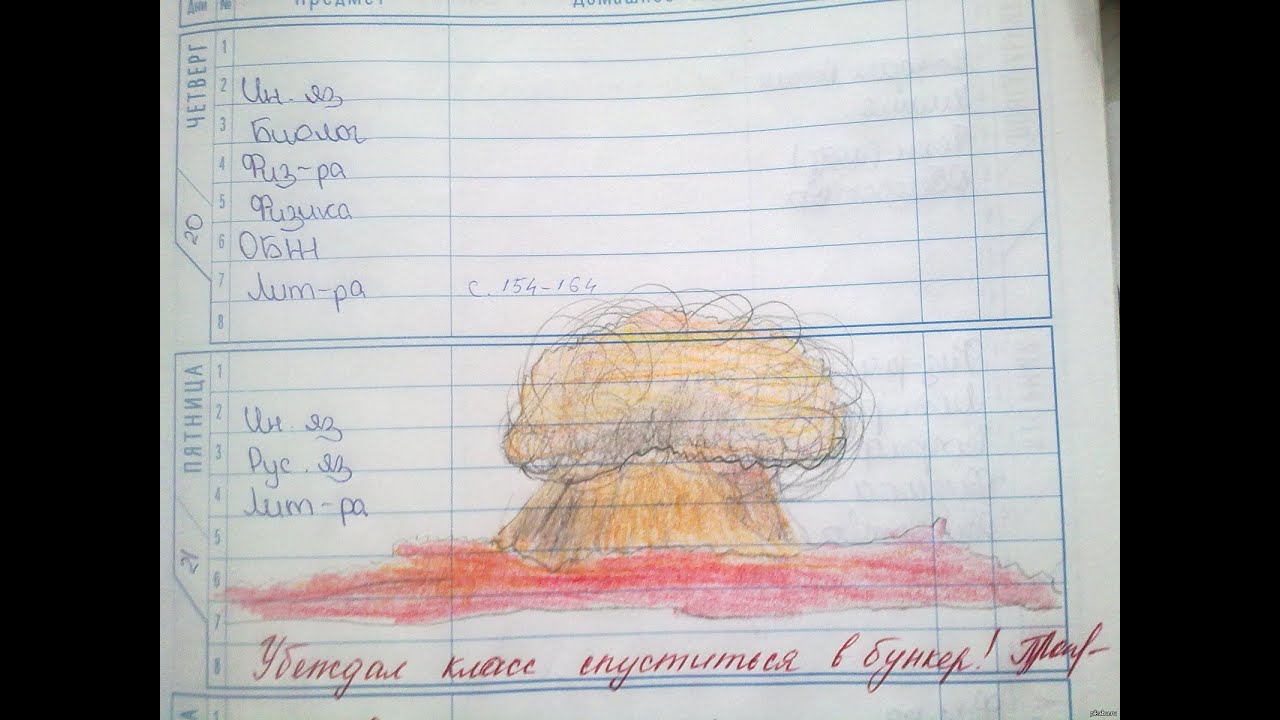 Дни № Предмет
ЧЕТВЕРГ
20
1
2 Ин. яз
3 Биолог
4 Физ-ра
5 Физика
6 ОБЖ
7 Лит-ра с. 154-164
8
ПЯТНИЦА
21
1
2 Ин. яз
3 Рус. яз
4 Лит-ра
5
6
7
8 Убеждал класс спуститься в бункер!
1